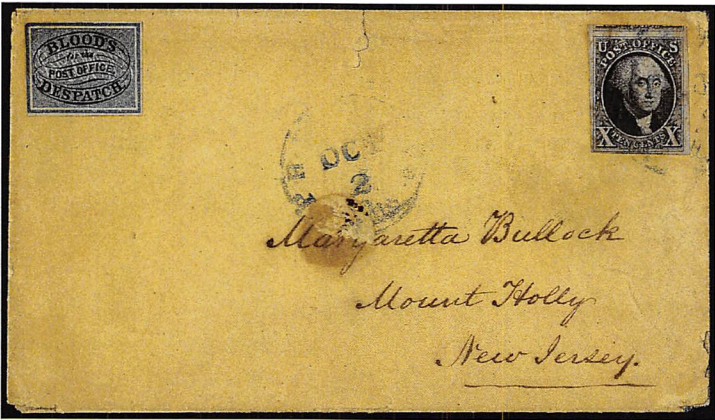 BLOOD'S
For the
POST OFFICE
DESPATCH.
U S
POST OFFICE
X TEN CENTS X
OCT
2
Margaretta Bullock
Mount Holly
New Jersey.